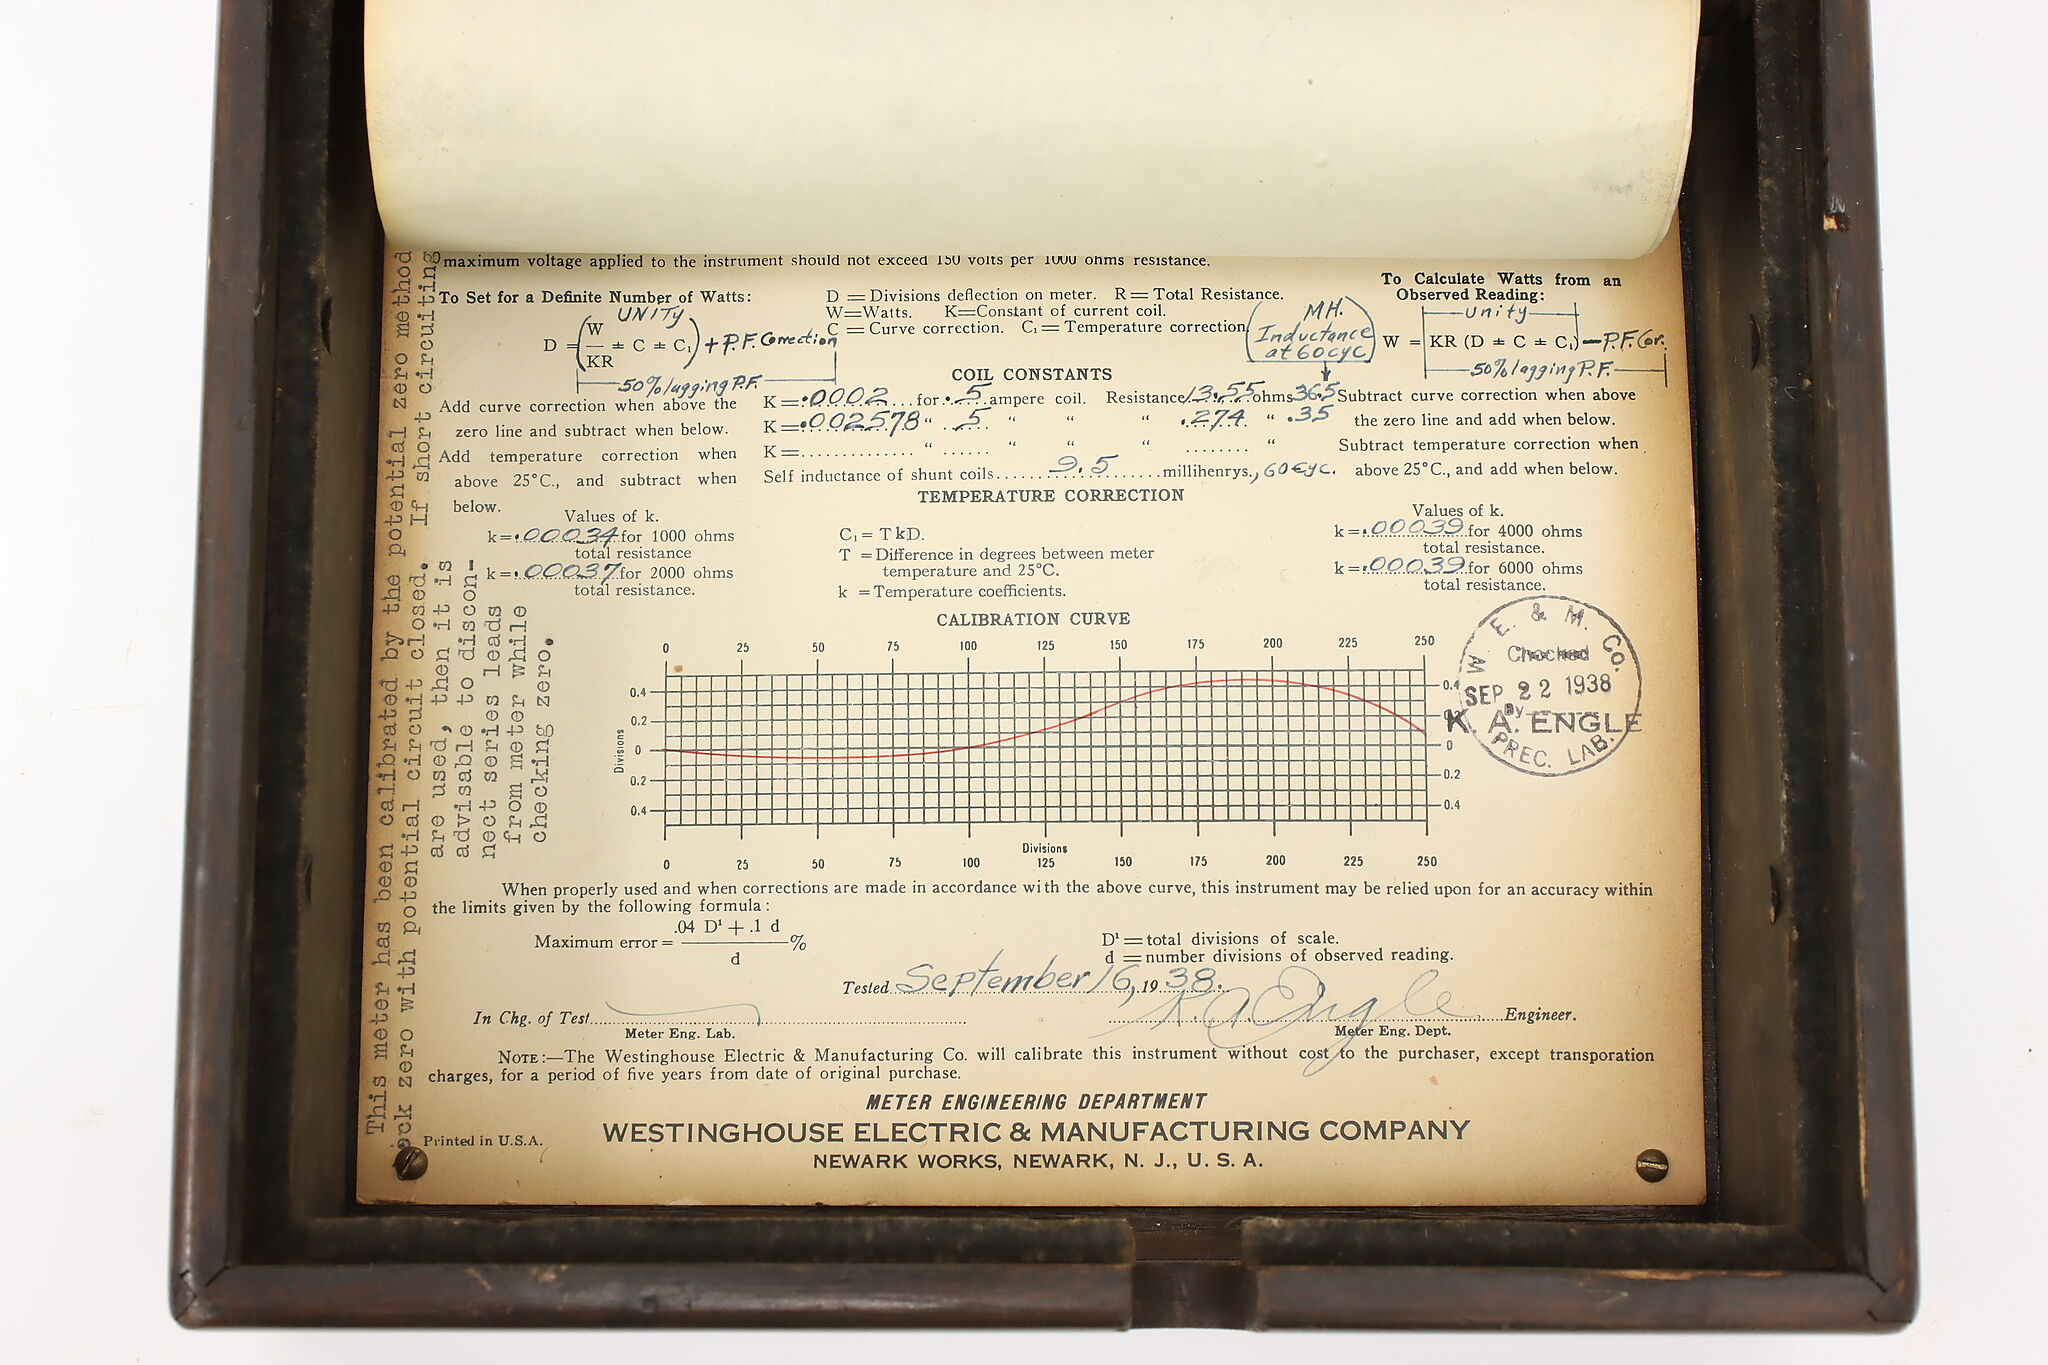 maximum voltage applied to the instrument should not exceed 150 volts per 1000 ohms resistance.
To Set for a Definite Number of Watts:
UNITY
D = ( W/KR ± C ± C₁ ) + P.F. Correction
50% lagging P.F.
D = Divisions deflection on meter. R = Total Resistance.
W = Watts. K = Constant of current coil.
C = Curve correction. C₁ = Temperature correction
MH.
Inductance
at 60 cyc
To Calculate Watts from an
Observed Reading:
Unity
W = KR (D ± C ± C₁) — P.F. Cor.
50% lagging P.F.
COIL CONSTANTS
Add curve correction when above the
zero line and subtract when below.
Add temperature correction when
above 25°C., and subtract when
below.
K = .0002 for .5 ampere coil. Resistance 13.55 ohms 36.5
K = .002578 " 5 " " " .274 " .35
K = " " " " "
Self inductance of shunt coils 9.5 millihenrys., 60 cyc.
Subtract curve correction when above
the zero line and add when below.
Subtract temperature correction when
above 25°C., and add when below.
TEMPERATURE CORRECTION
Values of k.
k = .00034 for 1000 ohms
total resistance
k = .00037 for 2000 ohms
total resistance.
C₁ = T k D.
T = Difference in degrees between meter
temperature and 25°C.
k = Temperature coefficients.
Values of k.
k = .00039 for 4000 ohms
total resistance.
k = .00039 for 6000 ohms
total resistance.
CALIBRATION CURVE
0 25 50 75 100 125 150 175 200 225 250
0.4 0.4
0.2 0.2
0 0
0.2 0.2
0.4 0.4
Divisions
Divisions
0 25 50 75 100 125 150 175 200 225 250
W. E. & M. Co.
Checked
SEP 22 1938
By
K. A. ENGLE
PREC. LAB.
This meter has been calibrated by the potential zero method
eck zero with potential circuit closed. If short circuiting
are used, then it is
advisable to discon-
nect series leads
from meter while
checking zero.
When properly used and when corrections are made in accordance with the above curve, this instrument may be relied upon for an accuracy within
the limits given by the following formula:
Maximum error = .04 D¹ + .1 d / d %
D¹ = total divisions of scale.
d = number divisions of observed reading.
Tested September 16, 1938.
In Chg. of Test
Meter Eng. Lab.
K. A. Engle Engineer.
Meter Eng. Dept.
NOTE:—The Westinghouse Electric & Manufacturing Co. will calibrate this instrument without cost to the purchaser, except transporation
charges, for a period of five years from date of original purchase.
METER ENGINEERING DEPARTMENT
Printed in U.S.A.
WESTINGHOUSE ELECTRIC & MANUFACTURING COMPANY
NEWARK WORKS, NEWARK, N. J., U. S. A.